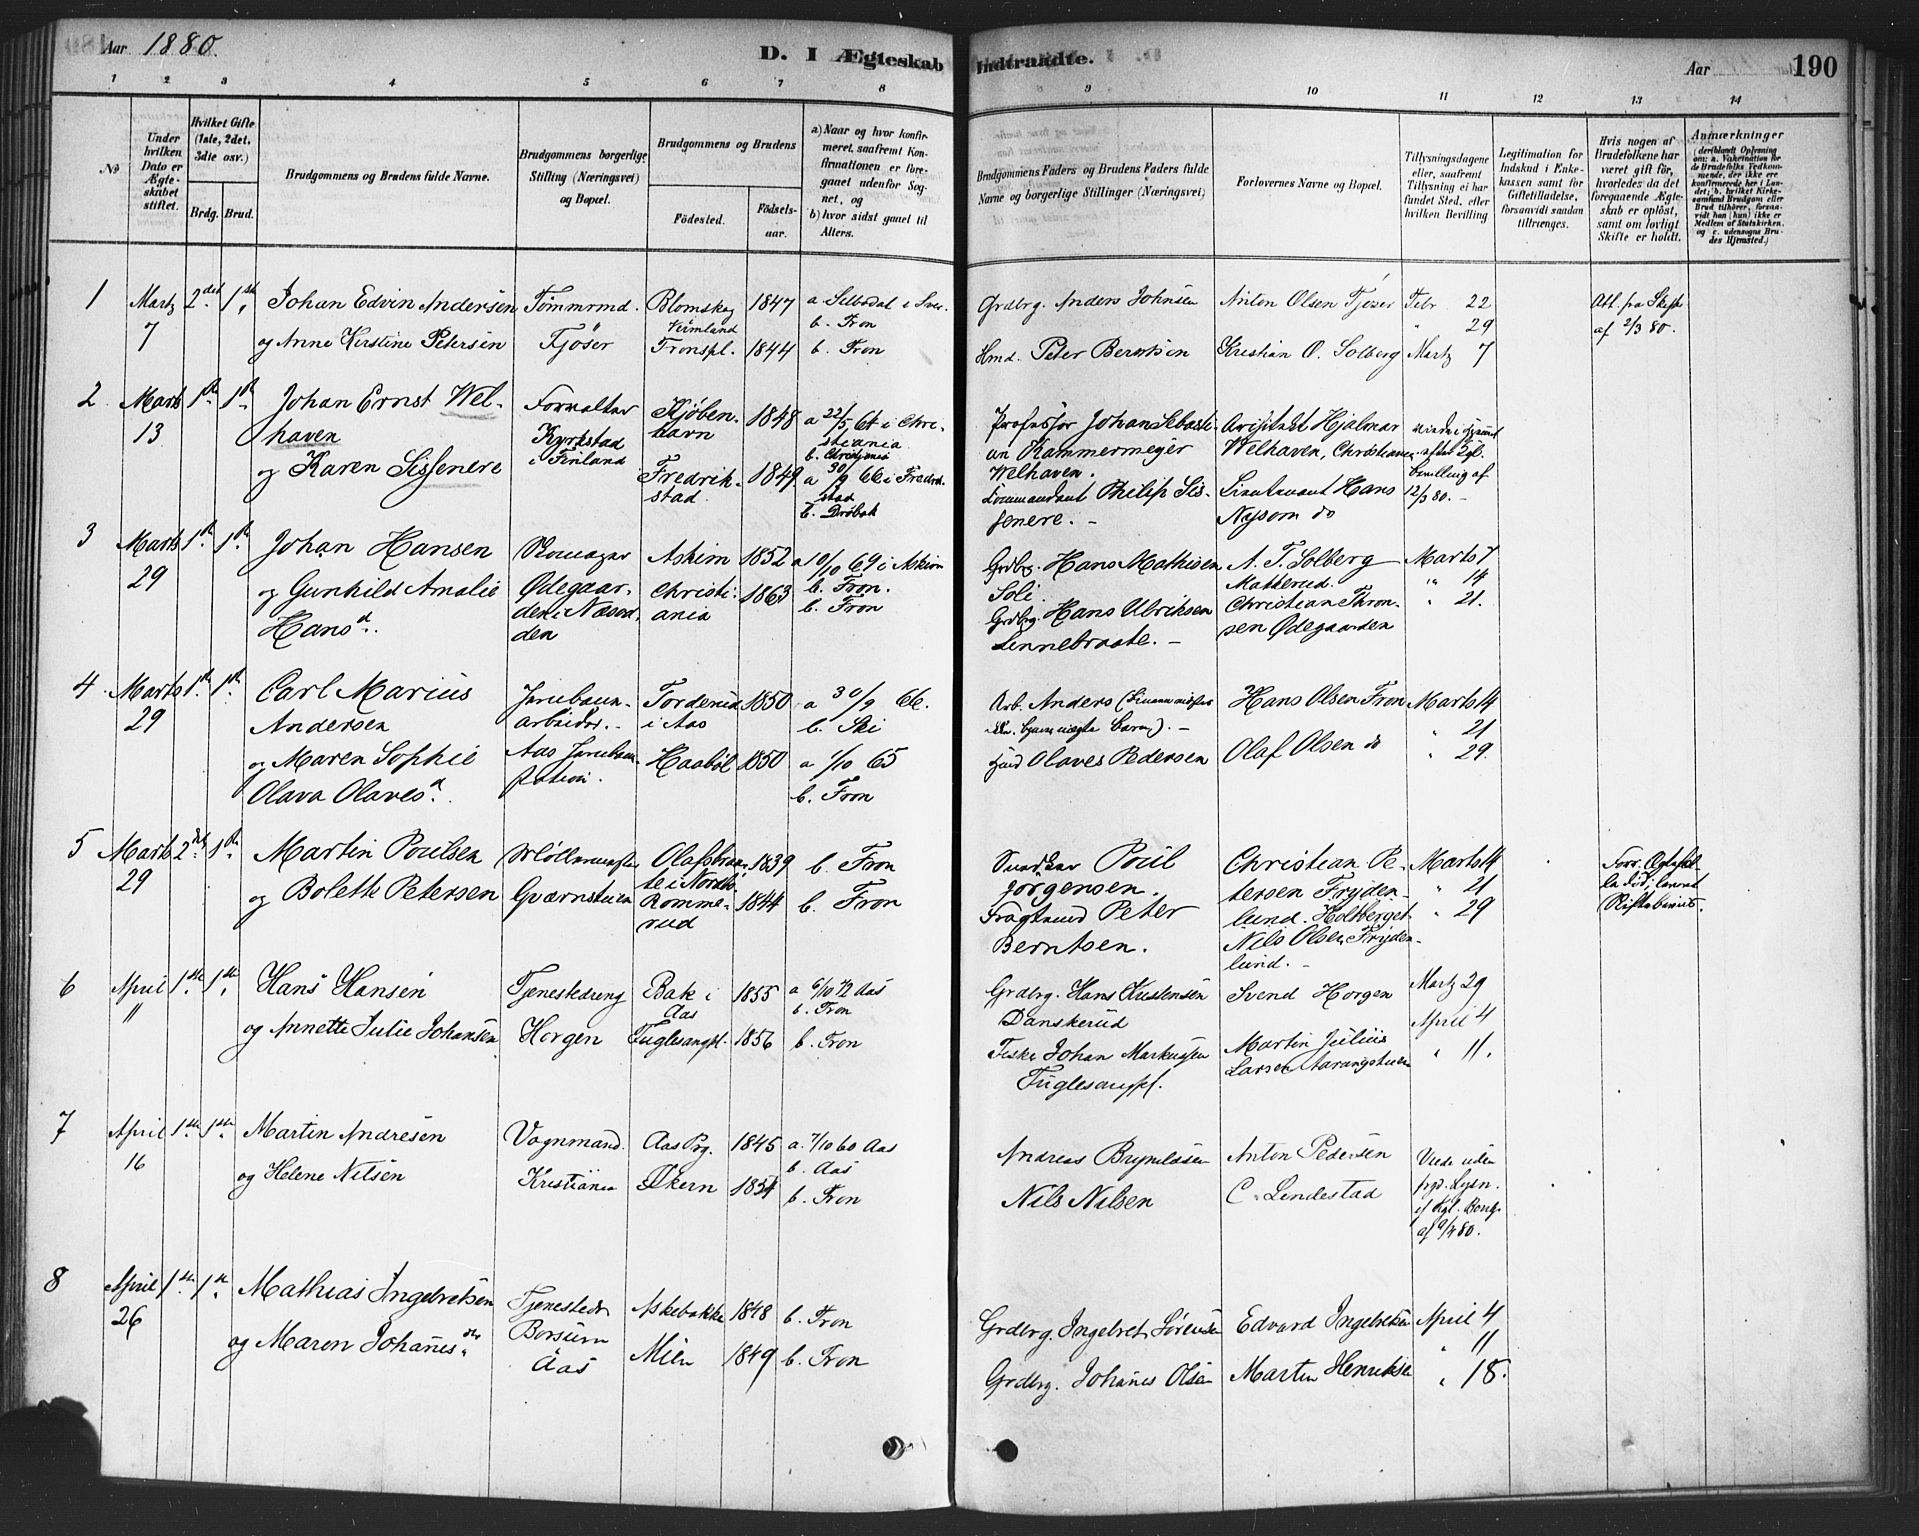 Aar 1880.
D. I Ægteskab
Indtraadte.
Aar 190
1 2 3 4 5 6 7 8 9 10 11 12 13 14
No
Under hvilken Dato er Ægteskabet stiftet.
Hvilket Gifte (1ste, 2det, 3die osv.)
Brdg. Brud.
Brudgommens og Brudens fulde Navne.
Brudgommens borgerlige Stilling (Næringsvei) og Bopæl.
Brudgommens og Brudens
Fødested. Fødselsaar.
a) Naar og hvor konfirmeret, saafremt Konfirmationen er foregaaet udenfor Sognet, og
b) hvor sidst gaaet til Alters.
Brudgommens Faders og Brudens Faders fulde Navne og borgerlige Stillinger (Næringsvei)
Forlovernes Navne og Bopæl.
Tillysningsdagene eller, saafremt Tillysning ei har fundet Sted, efter hvilken Bevilling
Legitimation for Indskud i Enkekassen samt for Giftetilladelse, forsaavidt saadan tiltrænges.
Hvis nogen af Brudefolkene har været gift før, hvorledes da det foregaaende Ægteskab er opløst, samt om lovligt Skifte er holdt.
Anmærkninger
1 Martz 7 2det 1ste
Johan Edvin Andersen
og Anne Kirstine Petersen
Tømmrmd.
Tjøser
Blomskog Vermland 1847
Fronspl. 1844
b. Fron
b. Fron
Grdbrg. Anders Johnsen
Hmd. Peter Berntsen
Anton Olsen Tjøser
Kristian O. Solberg
Febr 22
" 29
Martz 7
Att. fra Skifte
af 2/3 80.
2 Marts 13 1ste 1ste
Johan Ernst Welhaven
og Karen Sissenere
Forvalter
Kyrkstad
i Finland
Kjøbenhavn 1848
Fredrikstad 1849
a 22/5 64 i Christiania
b. Christiania
a 30/9 66 i Fredrikstad
b. Drøbak
Professor Johan Sebastian Kammermejer
Welhaven.
Commandant Philip Sissenere. –
Arkitekt Hjalmar
Welhaven, Christiania
Lieutenant Hans
Nysom do
bevilling af
12/3 80. –
3 Marts 29 1ste 1ste
Johan Hansen
og Gunhild Amalie
Hansd.
Skomager
Ødegaarden i Næsodden
Askim 1852
Christiania 1863
a 10/10 69 i Askim
b. Fron.
b. Fron
Grdbrg. Hans Mathisen
Soli.
Grdbrg. Hans Ulriksen
Linnebraate. –
A. T. Solberg
Katterud.
Christian Thronsen Ødegaarden
Marts 7
" 14
" 21.
4 Marts 29 1ste 1ste
Carl Marius
Andersen
og Maren Sophie
Olava Olavesd.
Jernbanearbeider. –
Aas Jernbanestation.
Torderud i Aas 1850
Haabøl 1850
a 30/9 66.
b. Ski
a 1/10 65
b. Fron
Arb. Anders
Olaves Pedersen
Hans Olsen Fron
Olaf Olsen do
Marts 14
" 21
" 29.
5 Marts 29 2det 1ste
Martin Poulsen
og Bolette Petersen
Møllermester
Gværnstuen
Olafsbraate i Nordby 1839
Rommerud 1844
b. Fron
b. Fron
Poul
Jørgensen.
Peter
Berntsen.
Christian Petersen Frydenlund. Holtberget
Nils Olsen Frydenlund. –
Marts 14
" 21
" 29
6 April 11 1ste 1ste
Hans Hansen
og Annette Julie Johansen
Tjenestedreng
Horgen
Bak i Aas 1855
Fuglesangpl. 1856
a 6/10 72 Aas
b. Fron
b. Fron
Grdbrg. Hans Kristensen
Danskerud
Fisker Johan Markussen
Fuglesangpl.
Svend Horgen
Martin Julius
Larsen
Martz 29
April 4
" 11.
7 April 16 1ste 1ste
Martin Andresen
og Helene Nilsen
Vognmand
Kristiania
Aas Prg. 1845
Økern 1854
a. 7/10 60 Aas
b. Aas
b. Fron
Andreas Brynildsen
Nils Nilsen
Anton Pedersen
C. Lendestad
Viede uden
frgd. Lysn.
ef Kgl. Bevg.
af 9/4 80.
8 April 26 1ste 1ste
Mathias Ingebretsen
og Maren Johanesdtr.
Tjenestedr
Borsum
Aas
Askebakke 1848
Mien 1849
b. Fron
b. Fron
Grdbrg. Ingebret Sørensen
Grdbrg. Johanes Olsen
Edvard Ingebretsen
Martin Henriksen
April 4
" 11
" 18.